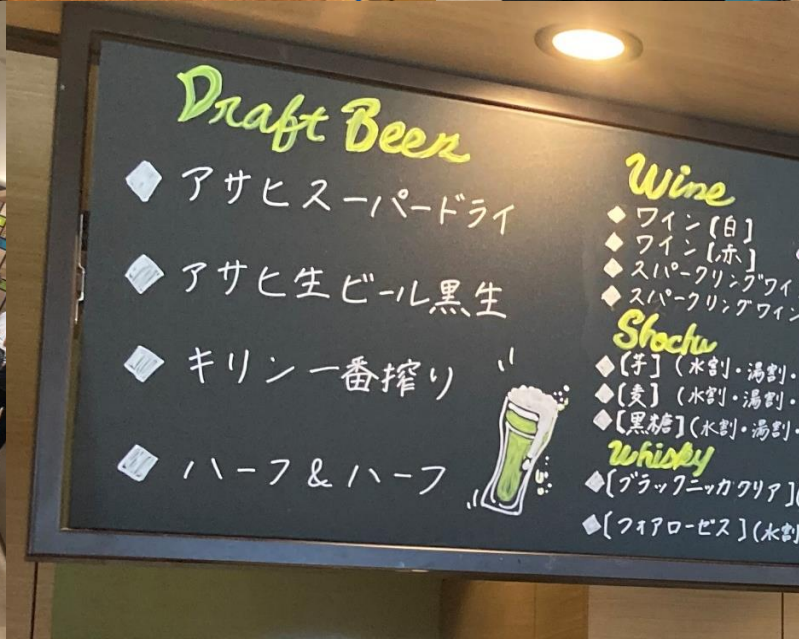 Draft Beer
アサヒスーパードライ
アサヒ生ビール黒生
キリン一番搾り
ハーフ&ハーフ
Wine
ワイン[白]
ワイン[赤]
スパークリングワイ
スパークリングワイン
Shochu
[芋](水割・湯割・
[麦](水割・湯割・
[黒糖](水割・湯割・
Whisky
[ブラックニッカクリア](
[フォアローゼス](水割